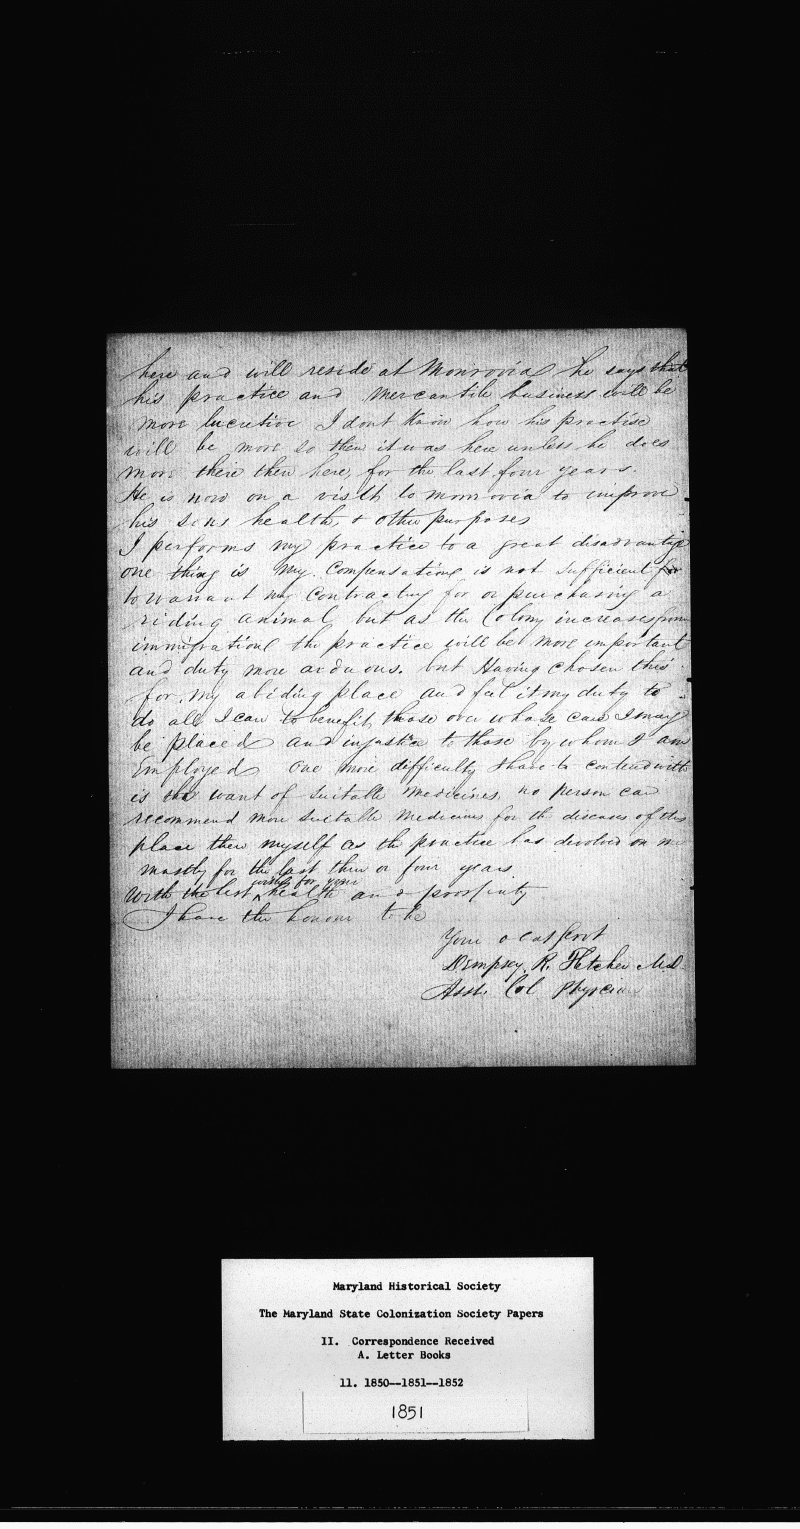 here and will reside at Monrovia he says that
his practice and mercantile business will be
more lucrative I dont know how his practise
will be more so then it was here unless he does
more there then here, for the last four years.
He is now on a visit to monrovia to improve
his sons health, & other purposes
I performs my practice to a great disadvantage
one thing is my compensation is not sufficient for
to warrant my contracting for or purchasing a
riding animal but as the Colony increases from
immigration the practice will be more important
and duty more arduous. but Having chosen this
for my abiding place and feel it my duty to
do all I can to benefit those over whose care I may
be placed and injustice to those by whom I am
Employed One more difficulty I have to contend with
is the want of suitable medicines, no person can
recommend more suitable medicines for the diseases of this
place then myself as the practice has devolved on me
mostly for the last three or four years
With the best wishes for your health and prosperity
I have the honour to be
Your obt Servt
Dempsey. R. Fletcher MD.
Asst. Col Physician
Maryland Historical Society
The Maryland State Colonization Society Papers
II. Correspondence Received
A. Letter Books
11. 1850--1851--1852
1851